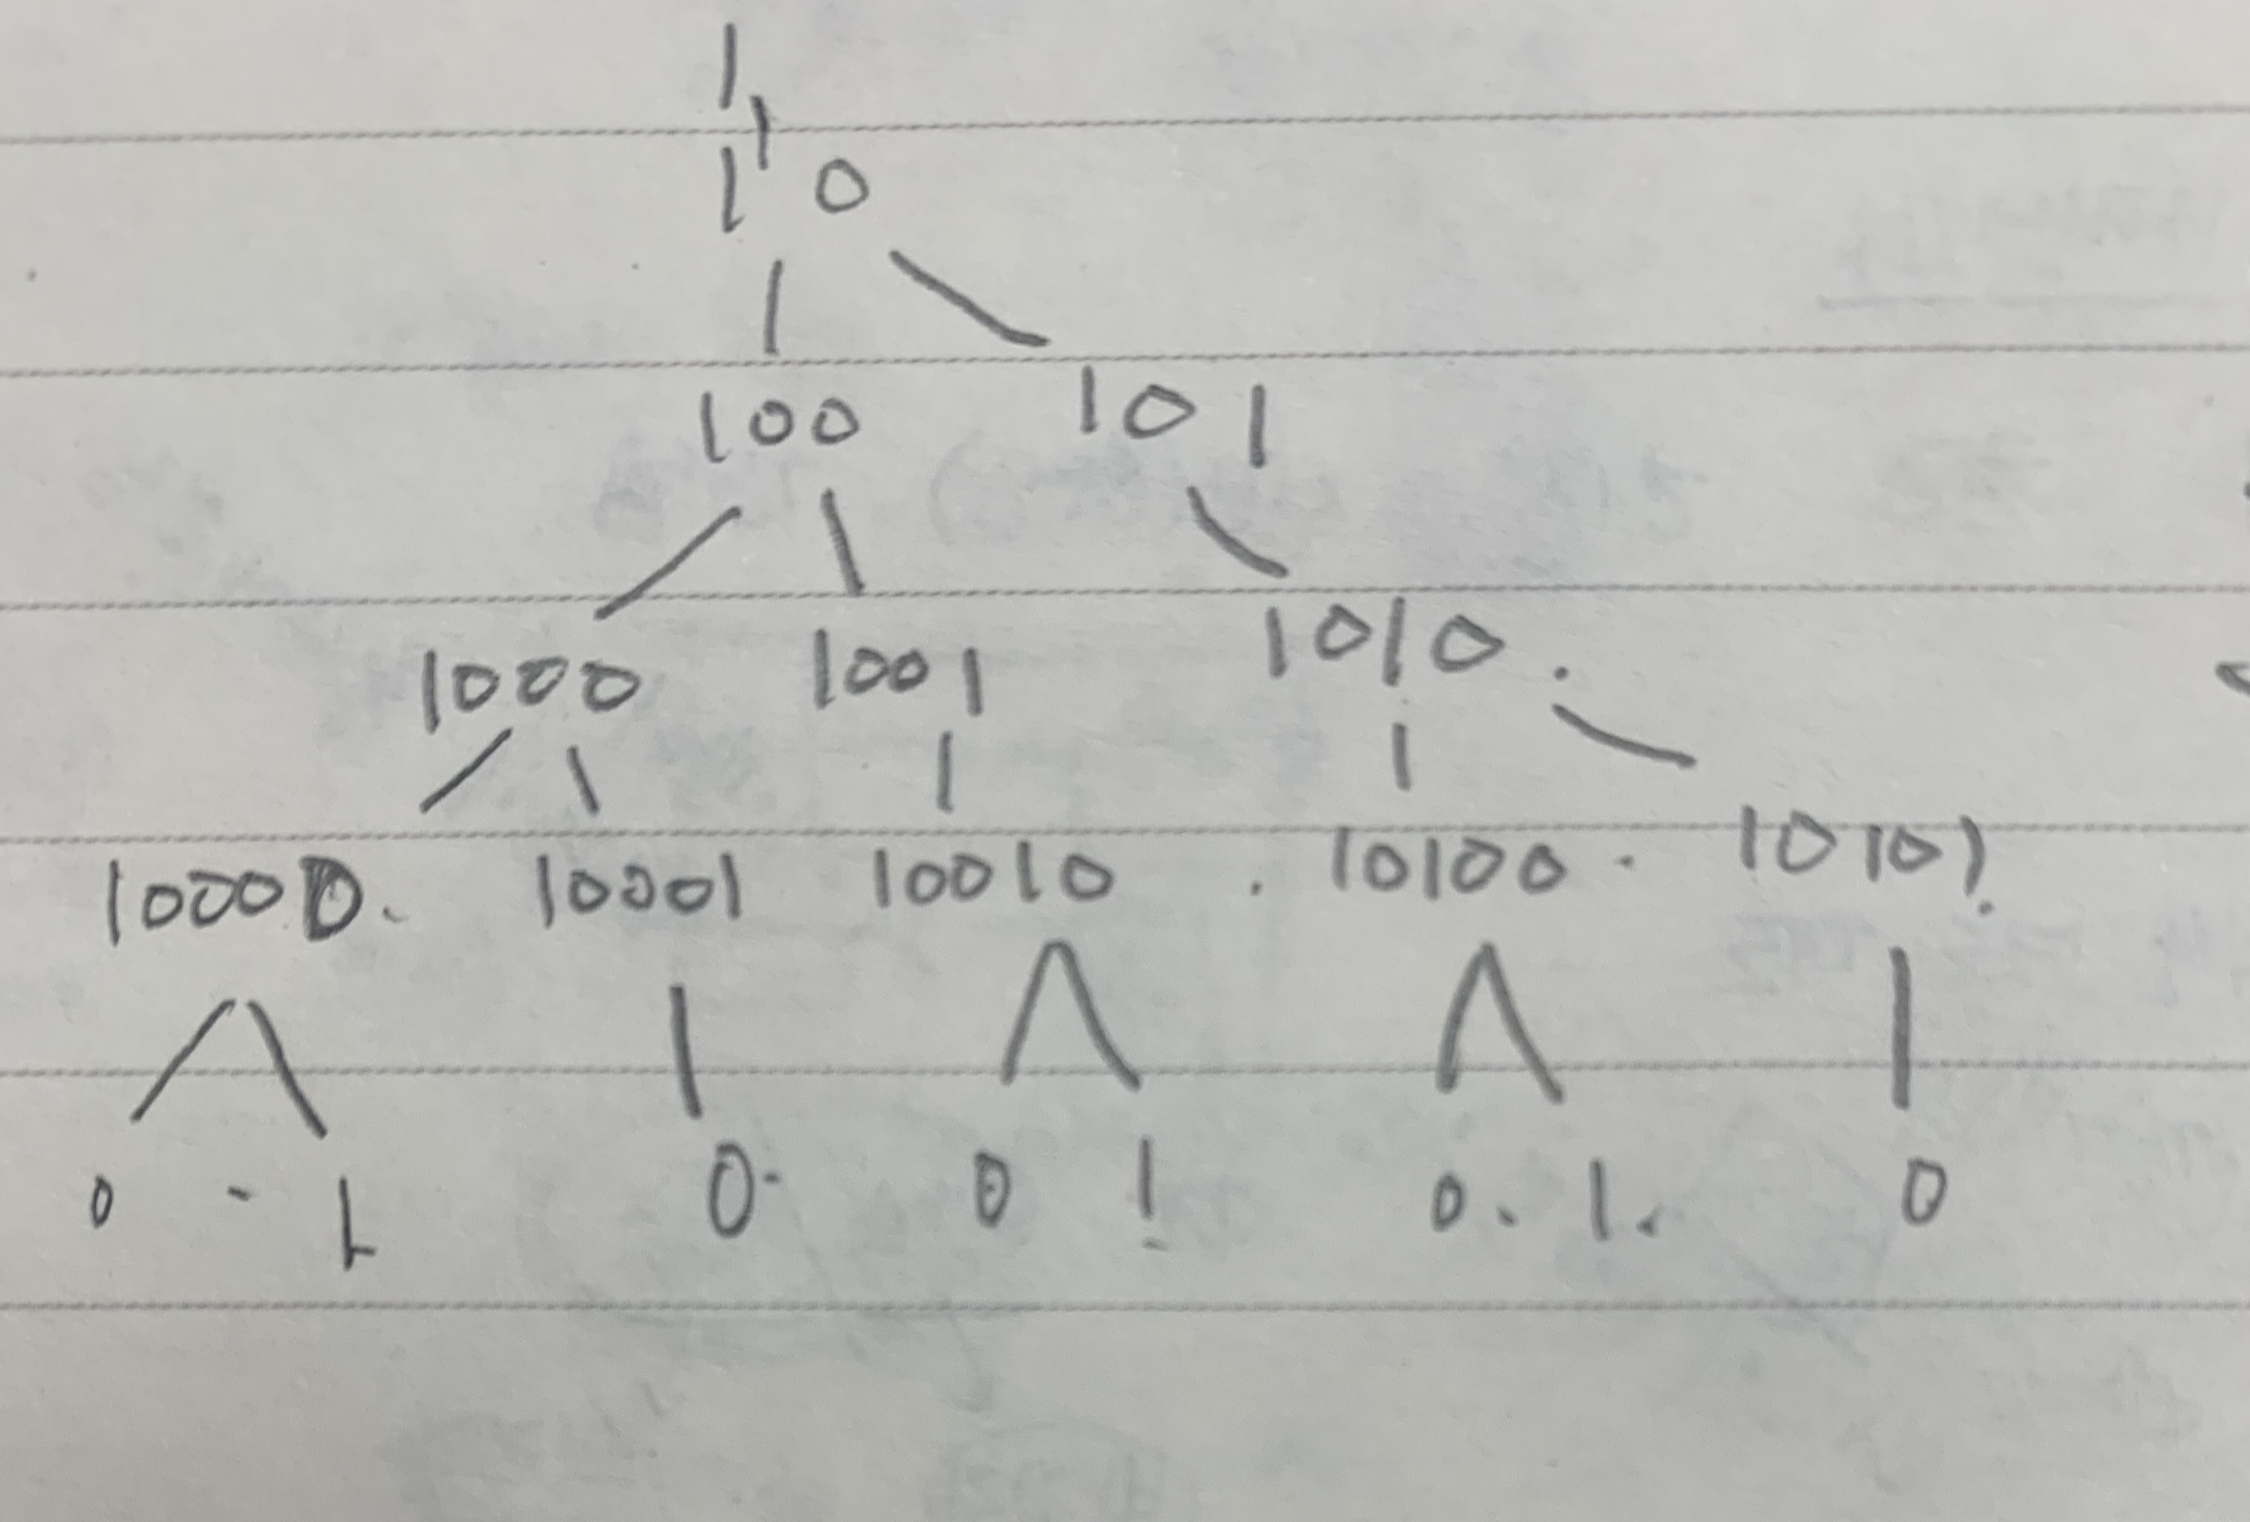 1
1 0
100 101
1000 1001 1010.
10000. 10001 10010 . 10100 . 10101.
0 - 1 0. 0 1 0. 1. 0